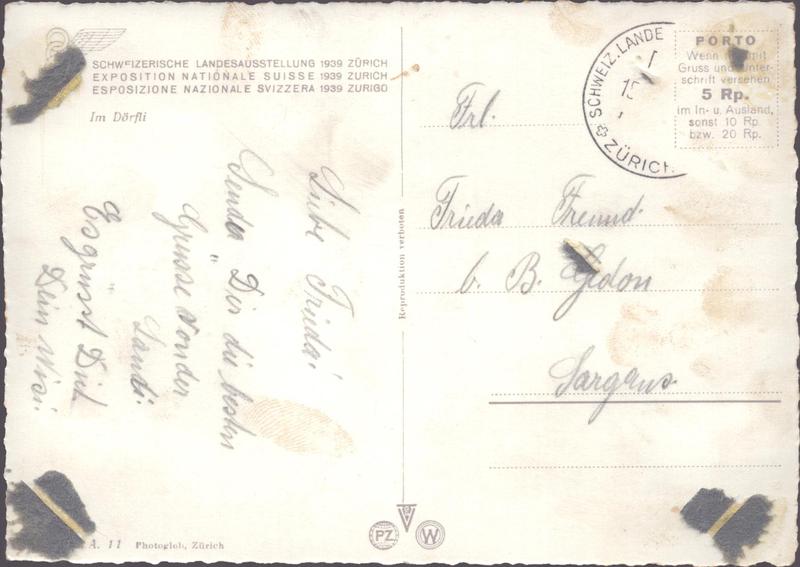 SCHWEIZERISCHE LANDESAUSSTELLUNG 1939 ZÜRICH
EXPOSITION NATIONALE SUISSE 1939 ZURICH
ESPOSIZIONE NAZIONALE SVIZZERA 1939 ZURIGO
Im Dörfli
Liebe Frieda!
Sende Dir die besten
Grüsse von der
Landi.
Es grüsst Dich
Dein
Reproduktion verboten
SCHWEIZ. LANDE
ZÜRICH
PORTO
Wenn mit
Gruss und Unter-
schrift versehen
5 Rp.
im In- u. Ausland,
sonst 10 Rp.
bzw. 20 Rp.
Frl.
Frieda Freund.
b. B. Gedon
Sargans.
A. 11 Photoglob, Zürich
PZ
W